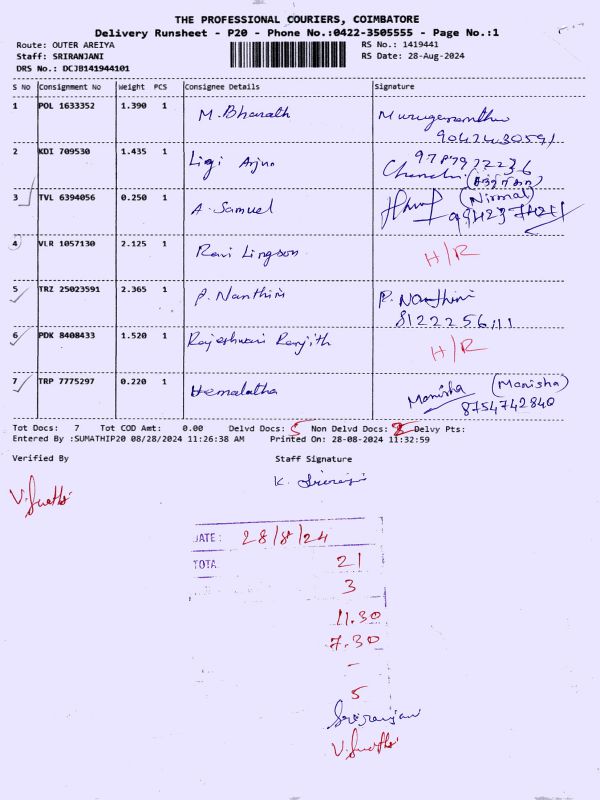 THE PROFESSIONAL COURIERS, COIMBATORE
Delivery Runsheet - P20 - Phone No.:0422-3505555 - Page No.:1
Route: OUTER AREIYA RS No.: 1419441
Staff: SRIRANJANI RS Date: 28-Aug-2024
DRS No.: DCJB141944101
S No Consignment No Weight PCS Consignee Details Signature
1 POL 1633352 1.390 1 M. Bharath Murugananthu
9042430591
2 KDI 709530 1.435 1 Ligi Arjun 9787972236
Chandru
3 TVL 6394056 0.250 1 A. Samuel (Nirmal)
4 VLR 1057130 2.125 1 Ravi Lingson H/R
5 TRZ 25023591 2.365 1 P. Nanthini P. Nanthini
8122256111
6 PDK 8408433 1.520 1 Rajeshwari Ranjith H/R
7 TRP 7775297 0.220 1 Hemalatha Monisha (Monisha)
8754742840
Tot Docs: 7 Tot COD Amt: 0.00 Delvd Docs: 5 Non Delvd Docs: 2 Delvy Pts:
Entered By :SUMATHIP20 08/28/2024 11:26:38 AM Printed On: 28-08-2024 11:32:59
Verified By Staff Signature
K. Sriranjani
V. Swathi
DATE : 28/8/24
TOTA 21
3
11.30
7.30
-
5
Sriranjani
V. Swathi